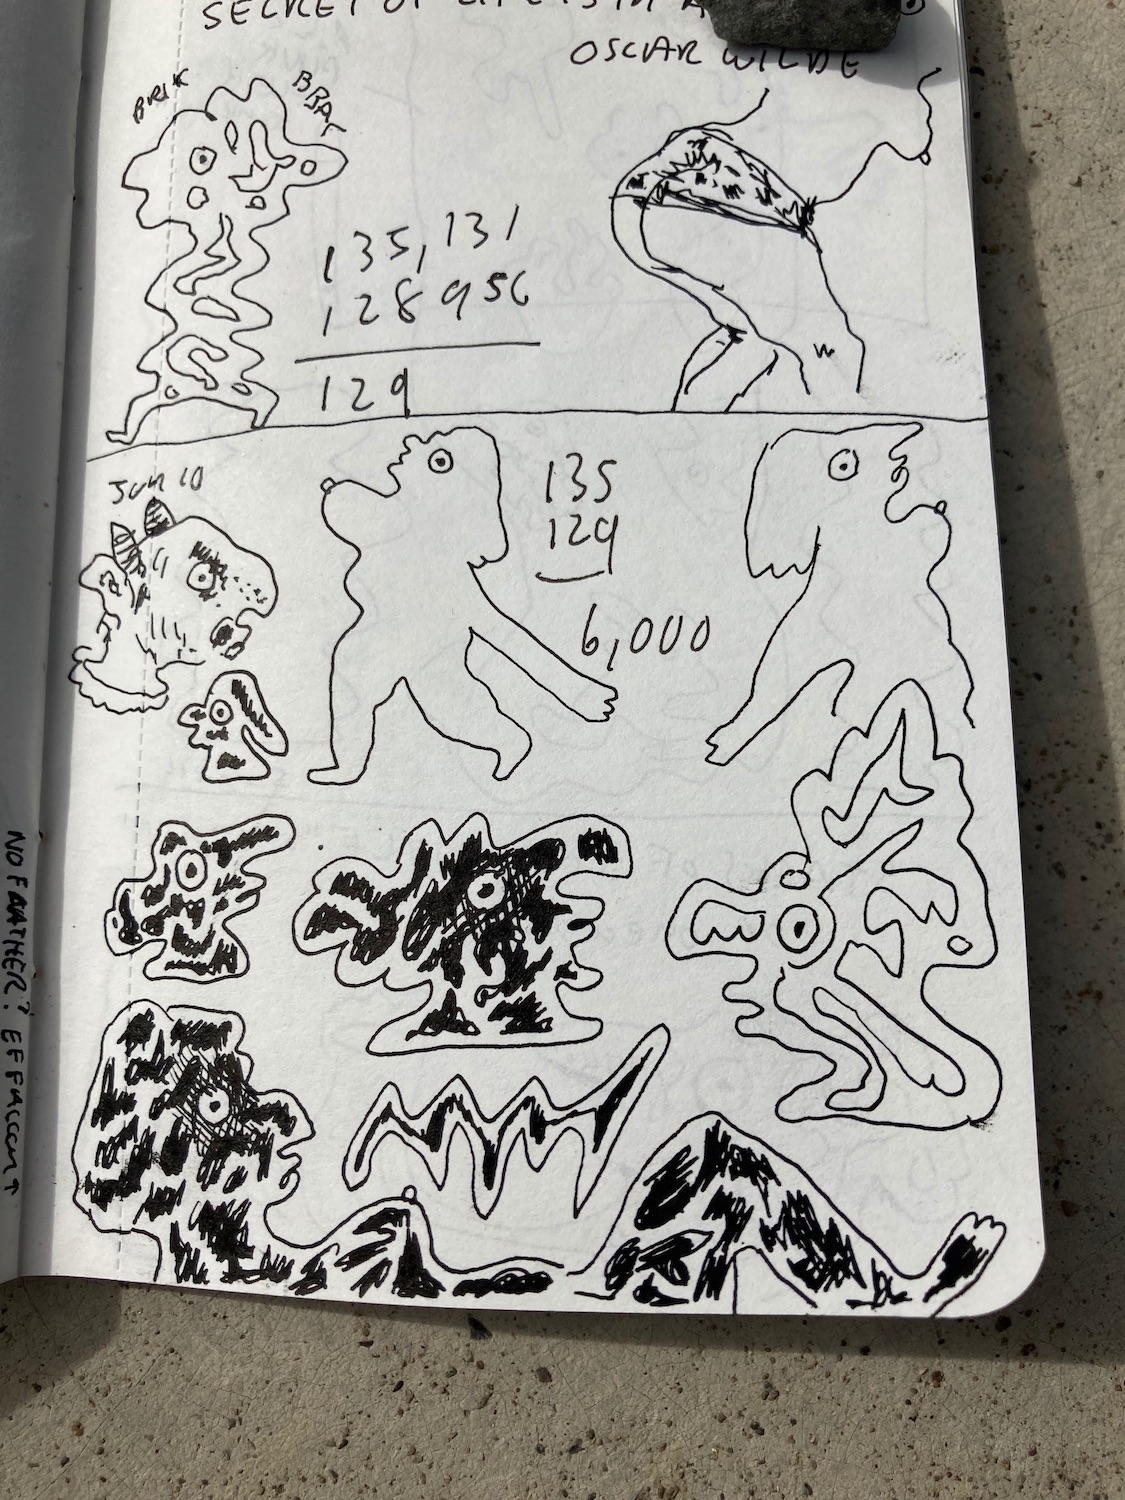 SECRET OF LIFE IS IN A
OSCAR WILDE
BRIK
BRAK
135,131
128956
129
JUN 10
135
129
6,000
NO FARTHER?